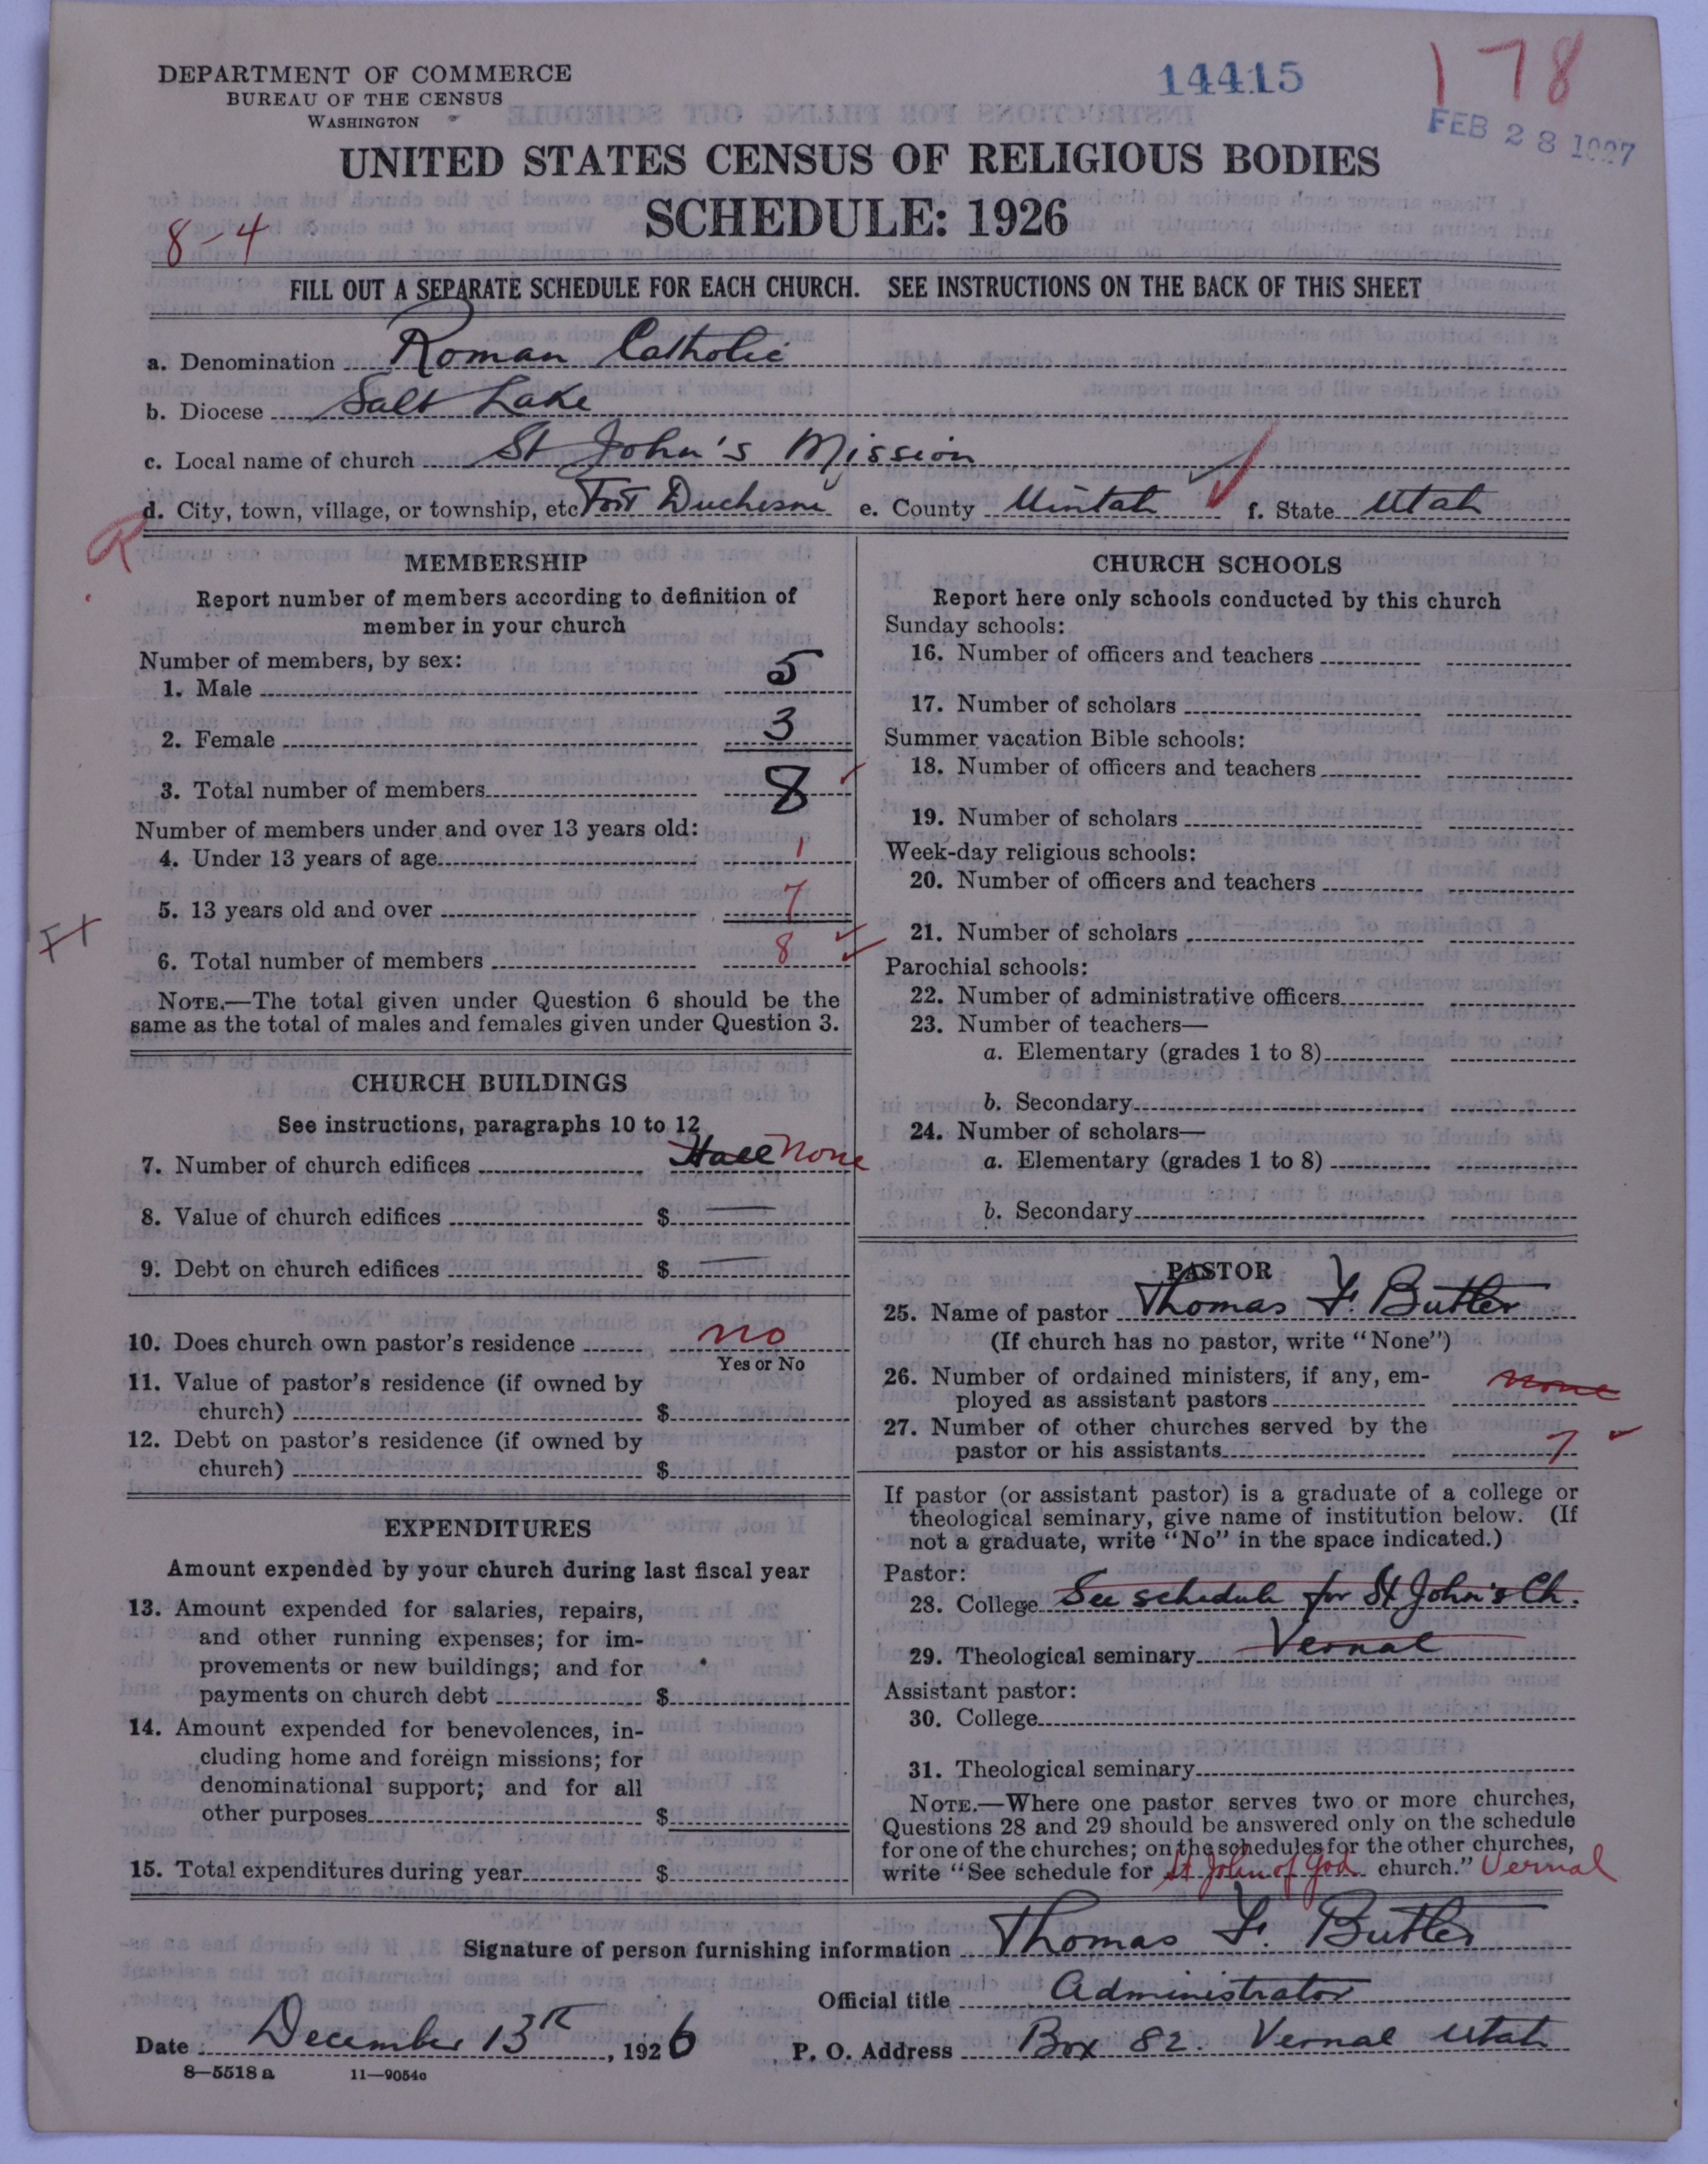 DEPARTMENT OF COMMERCE
BUREAU OF THE CENSUS
WASHINGTON
14415
178
FEB 28 1927
UNITED STATES CENSUS OF RELIGIOUS BODIES
SCHEDULE: 1926
8-4
FILL OUT A SEPARATE SCHEDULE FOR EACH CHURCH. SEE INSTRUCTIONS ON THE BACK OF THIS SHEET
a. Denomination Roman Catholic
b. Diocese Salt Lake
c. Local name of church St John's Mission
d. City, town, village, or township, etc Fort Duchesne e. County Uintah f. State Utah
R
MEMBERSHIP
Report number of members according to definition of
member in your church
Number of members, by sex:
1. Male 5
2. Female 3
3. Total number of members 8
Number of members under and over 13 years old:
4. Under 13 years of age 1
5. 13 years old and over 7
6. Total number of members 8
NOTE.—The total given under Question 6 should be the
same as the total of males and females given under Question 3.
CHURCH BUILDINGS
See instructions, paragraphs 10 to 12
7. Number of church edifices Hall none
8. Value of church edifices $
9. Debt on church edifices $
10. Does church own pastor's residence no
Yes or No
11. Value of pastor's residence (if owned by
church) $
12. Debt on pastor's residence (if owned by
church) $
EXPENDITURES
Amount expended by your church during last fiscal year
13. Amount expended for salaries, repairs,
and other running expenses; for im-
provements or new buildings; and for
payments on church debt $
14. Amount expended for benevolences, in-
cluding home and foreign missions; for
denominational support; and for all
other purposes $
15. Total expenditures during year $
CHURCH SCHOOLS
Report here only schools conducted by this church
Sunday schools:
16. Number of officers and teachers
17. Number of scholars
Summer vacation Bible schools:
18. Number of officers and teachers
19. Number of scholars
Week-day religious schools:
20. Number of officers and teachers
21. Number of scholars
Parochial schools:
22. Number of administrative officers
23. Number of teachers—
a. Elementary (grades 1 to 8)
b. Secondary
24. Number of scholars—
a. Elementary (grades 1 to 8)
b. Secondary
PASTOR
25. Name of pastor Thomas F. Butler
(If church has no pastor, write "None")
26. Number of ordained ministers, if any, em-
ployed as assistant pastors none
27. Number of other churches served by the
pastor or his assistants 7
If pastor (or assistant pastor) is a graduate of a college or
theological seminary, give name of institution below. (If
not a graduate, write "No" in the space indicated.)
Pastor:
28. College See schedule for St John's Ch.
29. Theological seminary Vernal
Assistant pastor:
30. College
31. Theological seminary
NOTE.—Where one pastor serves two or more churches,
Questions 28 and 29 should be answered only on the schedule
for one of the churches; on the schedules for the other churches,
write "See schedule for St John of God church." Vernal
Signature of person furnishing information Thomas F. Butler
Official title Administrator
Date December 13th, 1926 P. O. Address Box 82. Vernal Utah
8—5518 a 11—9054c